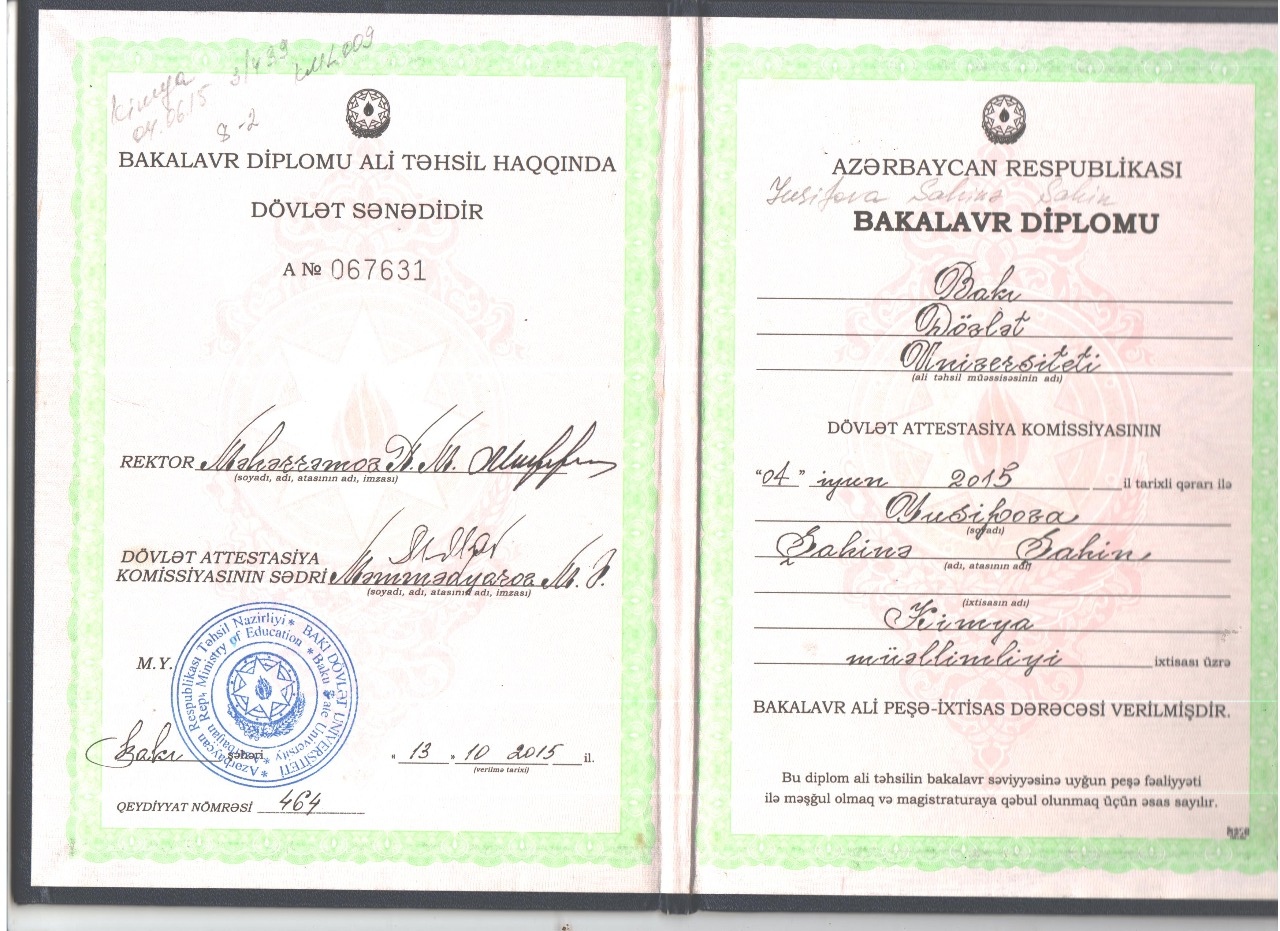 Kimya 3/439
04.06.15
8-2
BAKALAVR DİPLOMU ALİ TƏHSİL HAQQINDA
DÖVLƏT SƏNƏDİDİR
A № 067631
REKTOR Məhərrəmov A. M.
(soyadı, adı, atasının adı, imzası)
DÖVLƏT ATTESTASİYA
KOMİSSİYASININ SƏDRİ Məmmədyarov M. Ə.
(soyadı, adı, atasının adı, imzası)
Azərbaycan Respublikası Təhsil Nazirliyi * BAKI DÖVLƏT UNİVERSİTETİ *
Ministry of Education * Baku State University *
M.Y.
Bakı şəhəri
" 13 " 10 2015 il.
(verilmə tarixi)
QEYDİYYAT NÖMRƏSİ 464
AZƏRBAYCAN RESPUBLİKASI
Yusifova Şahinə Şahin
BAKALAVR DİPLOMU
Bakı
Dövlət
Universiteti
(ali təhsil müəssisəsinin adı)
DÖVLƏT ATTESTASİYA KOMİSSİYASININ
"04" iyun 2015 il tarixli qərarı ilə
Yusifova
(soyadı)
Şahinə Şahin
(adı, atasının adı)
(ixtisasın adı)
Kimya
müəllimliyi ixtisası üzrə
BAKALAVR ALİ PEŞƏ-İXTİSAS DƏRƏCƏSİ VERİLMİŞDİR.
Bu diplom ali təhsilin bakalavr səviyyəsinə uyğun peşə fəaliyyəti
ilə məşğul olmaq və magistraturaya qəbul olunmaq üçün əsas sayılır.